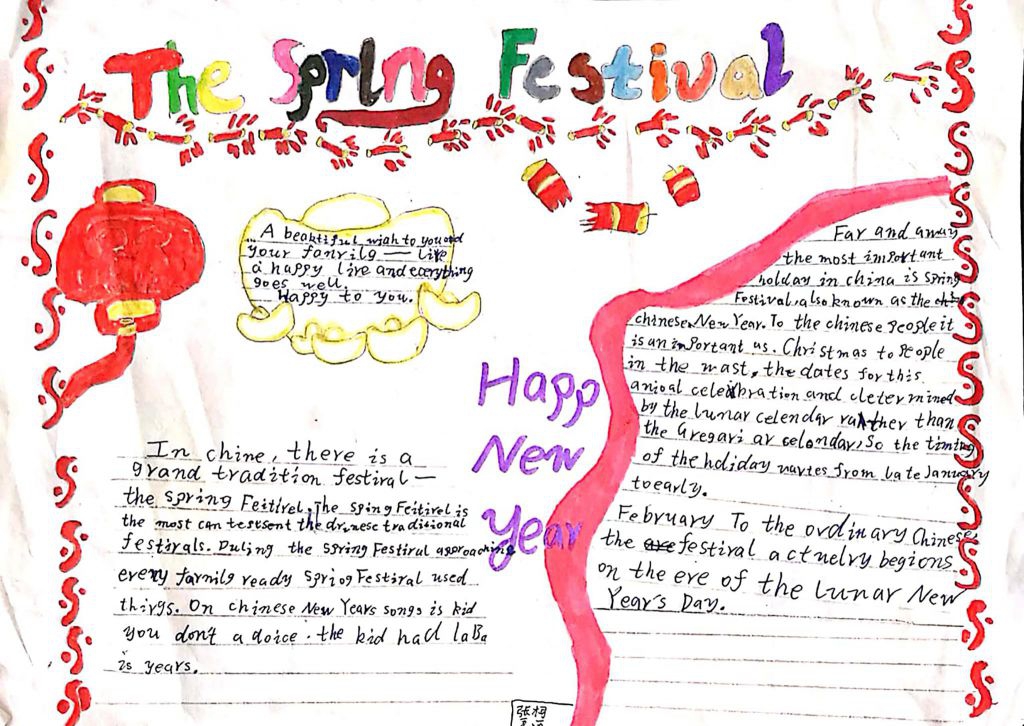 The Spring Festival
A beautiful wish to you and
your fanrily — live
a happy live and everything
goes well.
Happy to you.
Happ
New
Year
In chine, there is a
grand tradition festival —
the spring Feitirel. The sping Feitivel is
the most can testsent the drinese traditional
festirals. Duling the spring Festirul approaching
every farnily ready Spriog Festival used
thirgs. On chinese New Years songs is kid
you don't a doice. the kid had laBa
is years.
Far and away
the most important
holday in china is Spring
Festival, also known as the
chinese New Year. To the chinese people it
is an important as. Christmas to People
in the wast, the dates for this
anioal celebration and cletermined
by the lunar celendar rather than
the Gregari ar celonday, So the timing
of the holiday varies from late January
to early.
February To the ordinary Chinese
the festival actuelry begions
on the eve of the Lunar New
Year's Day.
张栩